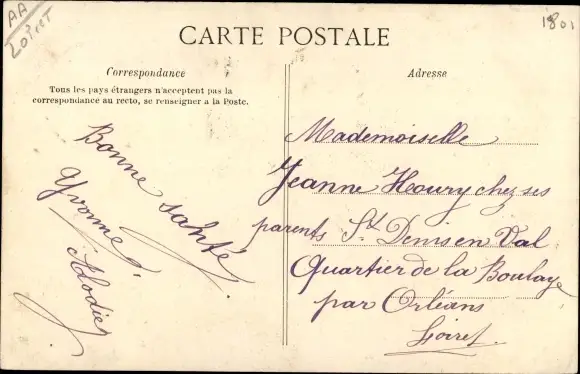 AA
Loiret
1801
CARTE POSTALE
Correspondance
Tous les pays étrangers n'acceptent pas la
correspondance au recto, se renseigner a la Poste.
Bonne santé
Yvonne
Elodie
Adresse
Mademoiselle
Jeanne Houry chez ses
parents St Denis en Val
Quartier de la Boulaye
par Orléans
Loiret